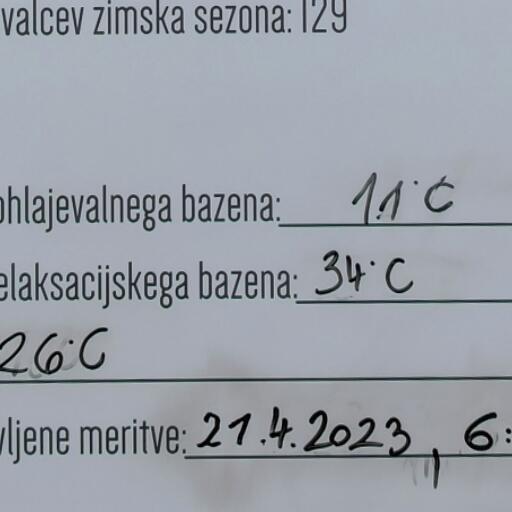 valcev zimska sezona: 129
ohlajevalnega bazena: 11°C
elaksacijskega bazena: 34°C
26°C
vljene meritve: 21.4.2023, 6: